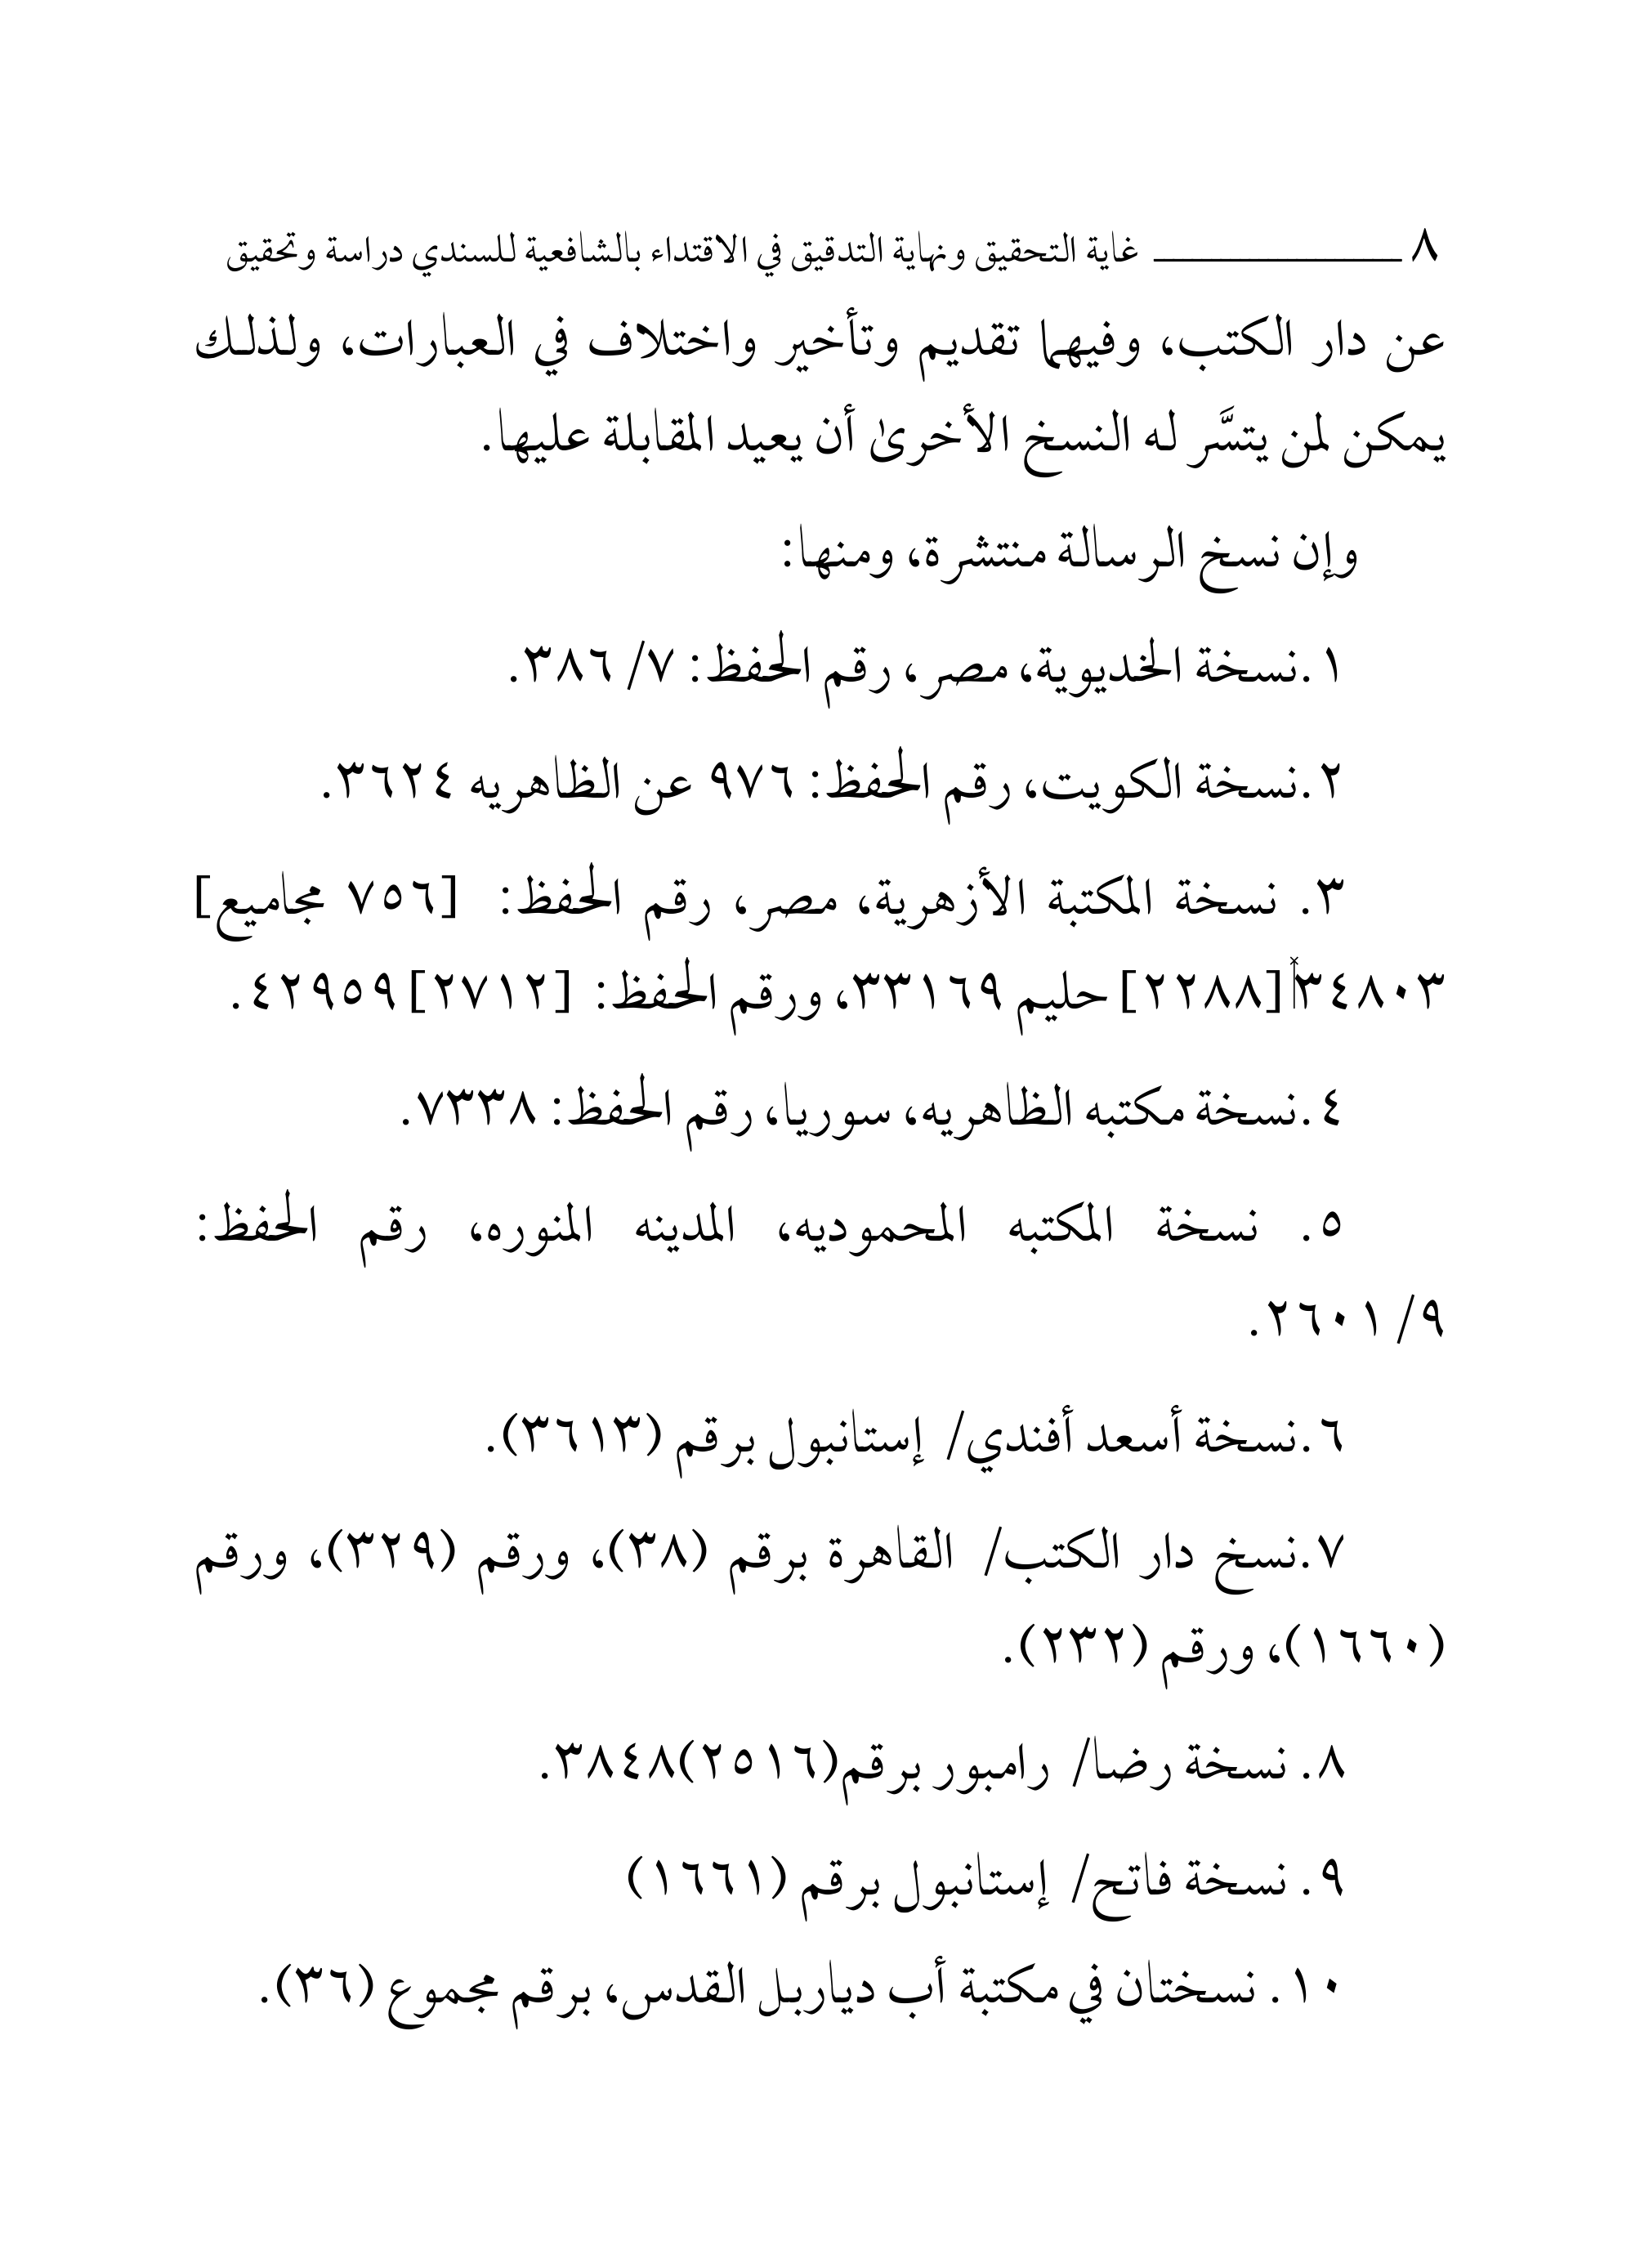 ٨ ـــــــــــــــــ غاية التحقيق ونهاية التدقيق في الاقتداء بالشافعية للسندي دراسة وتحقيق
عن دار الكتب، وفيهما تقديم وتأخير واختلاف في العبارات، ولذلك
يمكن لمن يتسَّر له النسخ الأخرىٰ أن يعيد المقابلة عليها.
وإن نسخ الرسالة منتشرة، ومنها:
١.نسخة الخديوية، مصر، رقم الحفظ: ٧/ ٣٨٦.
٢.نسخة الكويت، رقم الحفظ: ٩٧٦ عن الظاهريه ٣٦٢٤.
٣. نسخة المكتبة الأزهرية، مصر، رقم الحفظ: [٧٥٦ مجاميع]
٣٤٨٠٣[٢٢٨٨] حليم ٣٣١٦٩، ورقم الحفظ: [٢٧١٢] ٤٢٩٥٩.
٤.نسخة مكتبه الظاهريه، سوريا، رقم الحفظ: ٧٣٣٨.
٥. نسخة المكتبه المحموديه، المدينه المنوره، رقم الحفظ:
٩/ ٢٦٠١.
٦.نسخة أسعد أفندي/ إستانبول برقم (٣٦١٣).
٧.نسخ دار الكتب/ القاهرة برقم (٣٨)، ورقم (٣٢٩)، ورقم
(١٦٦٠)، ورقم (٢٣٢).
٨. نسخة رضا/ رامبور برقم(٢٥١٦)٣٨٤٨.
٩. نسخة فاتح/ إستانبول برقم (١٦٦١)
١٠. نسختان في مكتبة أب دياربل القدس، برقم مجموع (٣٦).